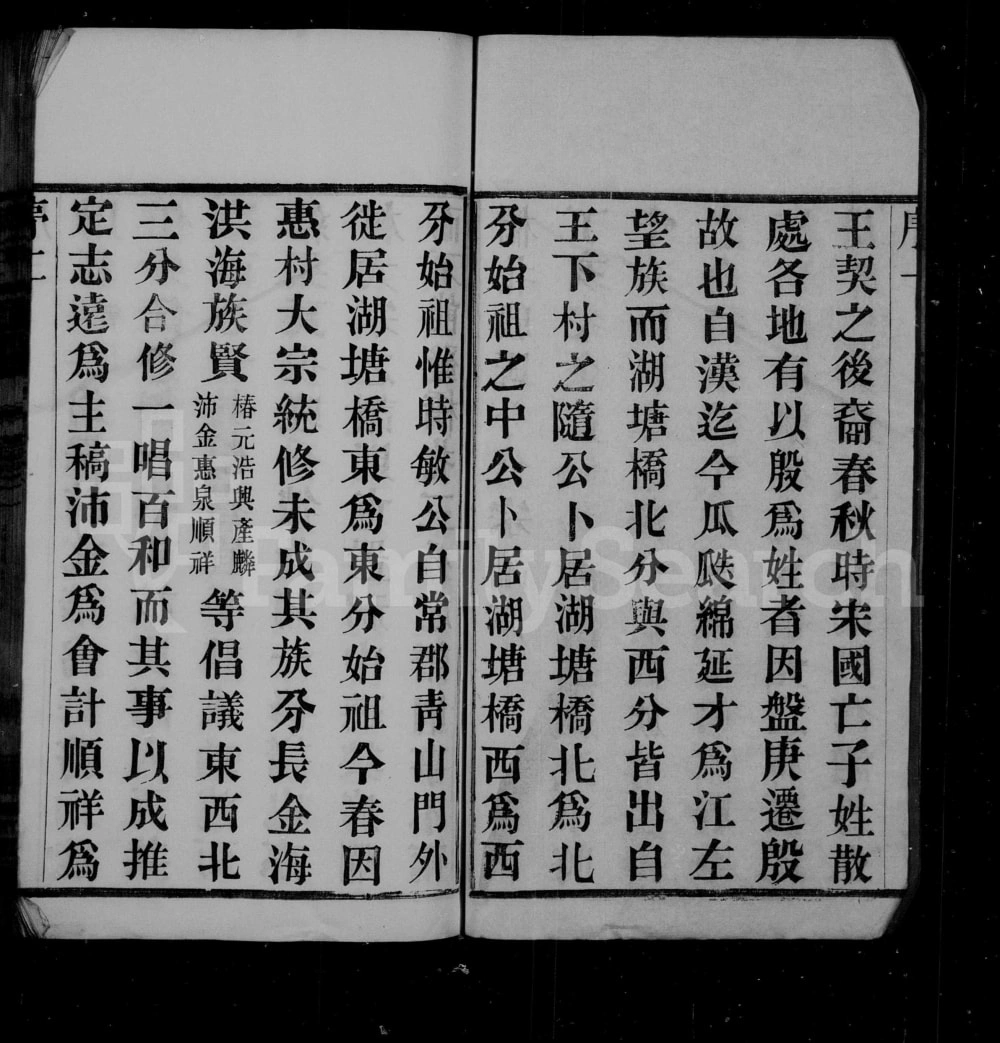 王契之後裔春秋時宋國亡子姓散
處各地有以殷爲姓者因盤庚遷殷
故也自漢迄今瓜瓞綿延才爲江左
望族而湖塘橋北分與西分皆出自
王下村之隨公卜居湖塘橋北爲北
分始祖之中公卜居湖塘橋西爲西
分始祖惟時敏公自常郡青山門外
徙居湖塘橋東爲東分始祖今春因
惠村大宗統修未成其族分長金海
洪海族賢椿元浩興產麟沛金惠泉順祥等倡議東西北
三分合修一唱百和而其事以成推
定志遠爲主稿沛金爲會計順祥爲
FamilySearch